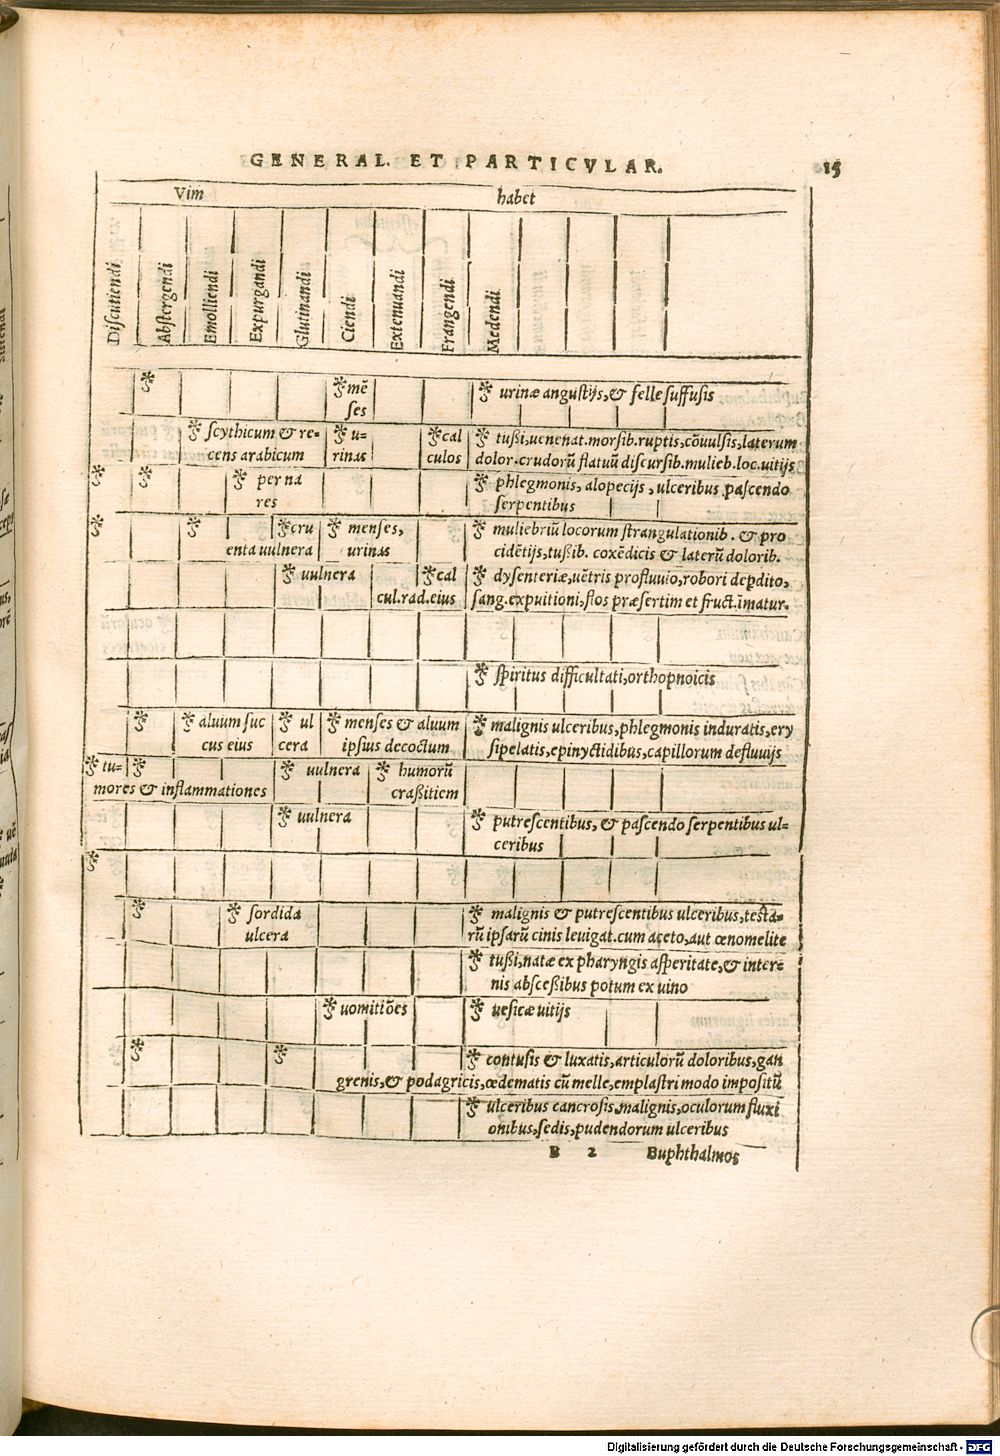 GENERAL. ET PARTICVLAR. 15
Vim habet
Discutiendi
Abstergendi
Emolliendi
Expurgandi
Glutinandi
Ciendi
Extenuandi
Frangendi
Medendi
mē urinæ angustijs,& felle suffusis
ses
scythicum & re= u= cal tußi,uenenat.morsib.ruptis,cōuulsis,laterum
cens arabicum rinas culos dolor.crudorū flatuū discursib.mulieb.loc.uitijs
per na phlegmonis, alopecijs, ulceribus pascendo
res serpentibus
cru menses, muliebriū locorum strangulationib. & pro
enta uulnera urinas cidētijs,tußib. coxēdicis & laterū dolorib.
uulnera cal dysenteriæ,uētris profluuio,robori depdito,
cul.rad.eius sang.expuitioni,flos præsertim et fruct.īmatur.
spiritus difficultati,orthopnoicis
aluum suc ul menses & aluum malignis ulceribus,phlegmonis induratis,ery
cus eius cera ipsius decoctum sipelatis,epinyctidibus,capillorum defluuijs
tu= uulnera humorū
mores & inflammationes craßitiem
uulnera putrescentibus, & pascendo serpentibus ul=
ceribus
sordida malignis & putrescentibus ulceribus,testa=
ulcera rū ipsarū cinis leuigat.cum aceto,aut œnomelite
tußi,natæ ex pharyngis asperitate,& inter=
nis absceßibus potum ex uino
uomitiōes uesicæ uitijs
contusis & luxatis,articulorū doloribus,gan
grenis,& podagricis,œdematis cū melle,emplastri modo impositū
ulceribus cancrosis,malignis,oculorum fluxi
onibus,sedis,pudendorum ulceribus
B 2 Buphthalmos
Digitalisierung gefördert durch die Deutsche Forschungsgemeinschaft - DFG